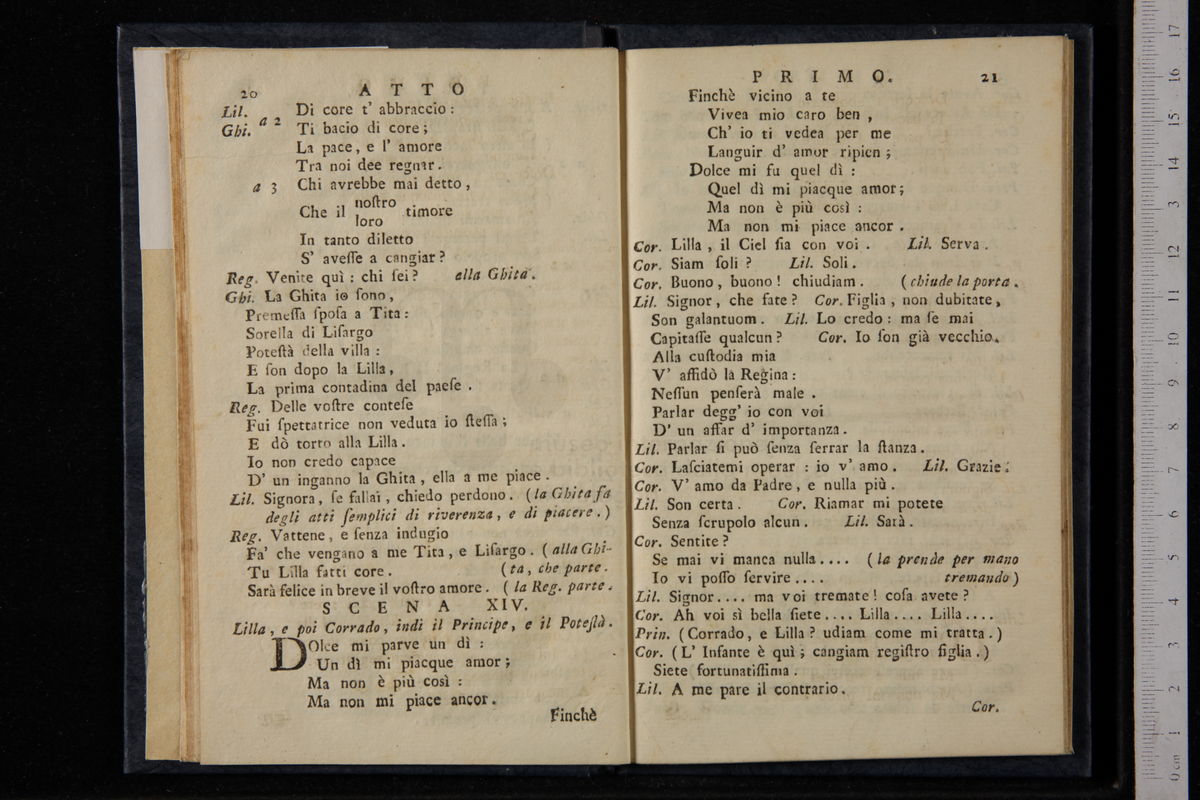 20 ATTO
Lil. Di core t' abbraccio :
a 2
Ghi. Ti bacio di core ;
La pace, e l' amore
Tra noi dee regnar.
a 3 Chi avrebbe mai detto ,
Che il noſtro timore
loro
In tanto diletto
S' aveſſe a cangiar ?
Reg. Venite quì : chi ſei ? alla Ghita.
Ghi. La Ghita io ſono ,
Premeſſa ſpoſa a Tita :
Sorella di Liſargo
Poteſtà della villa :
E ſon dopo la Lilla ,
La prima contadina del paeſe .
Reg. Delle voſtre conteſe
Fui ſpettatrice non veduta io ſteſſa ;
E dò torto alla Lilla .
Io non credo capace
D' un inganno la Ghita , ella a me piace .
Lil. Signora, ſe fallai, chiedo perdono . ( la Ghita fa
degli atti ſemplici di riverenza, e di piacere . )
Reg. Vattene , e ſenza indugio
Fa' che vengano a me Tita , e Liſargo . ( alla Ghi-
Tu Lilla fatti core . ( ta, che parte .
Sarà felice in breve il voſtro amore . ( la Reg. parte .
SCENA XIV.
Lilla, e poi Corrado, indi il Principe, e il Poteſtà .
DOlce mi parve un dì :
Un dì mi piacque amor ;
Ma non è più così :
Ma non mi piace ancor .
Finchè
PRIMO. 21
Finchè vicino a te
Vivea mio caro ben ,
Ch' io ti vedea per me
Languir d' amor ripien ;
Dolce mi fu quel dì :
Quel dì mi piacque amor ;
Ma non è più così :
Ma non mi piace ancor .
Cor. Lilla , il Ciel ſia con voi . Lil. Serva .
Cor. Siam ſoli ? Lil. Soli .
Cor. Buono , buono ! chiudiam . ( chiude la porta .
Lil. Signor , che fate ? Cor. Figlia , non dubitate ,
Son galantuom . Lil. Lo credo : ma ſe mai
Capitaſſe qualcun ? Cor. Io ſon già vecchio .
Alla cuſtodia mia
V' affidò la Regina :
Neſſun penſerà male .
Parlar degg' io con voi
D' un affar d' importanza .
Lil. Parlar ſi può ſenza ſerrar la ſtanza .
Cor. Laſciatemi operar : io v' amo . Lil. Grazie .
Cor. V' amo da Padre , e nulla più .
Lil. Son certa . Cor. Riamar mi potete
Senza ſcrupolo alcun . Lil. Sarà .
Cor. Sentite ?
Se mai vi manca nulla .... ( la prende per mano
Io vi poſſo ſervire .... tremando )
Lil. Signor .... ma voi tremate ! coſa avete ?
Cor. Ah voi sì bella ſiete .... Lilla .... Lilla ....
Prin. ( Corrado , e Lilla ? udiam come mi tratta . )
Cor. ( L' Infante è quì ; cangiam regiſtro figlia . )
Siete fortunatiſſima .
Lil. A me pare il contrario .
Cor.
0 cm 1 2 3 4 5 6 7 8 9 10 11 12 13 14 15 16 17